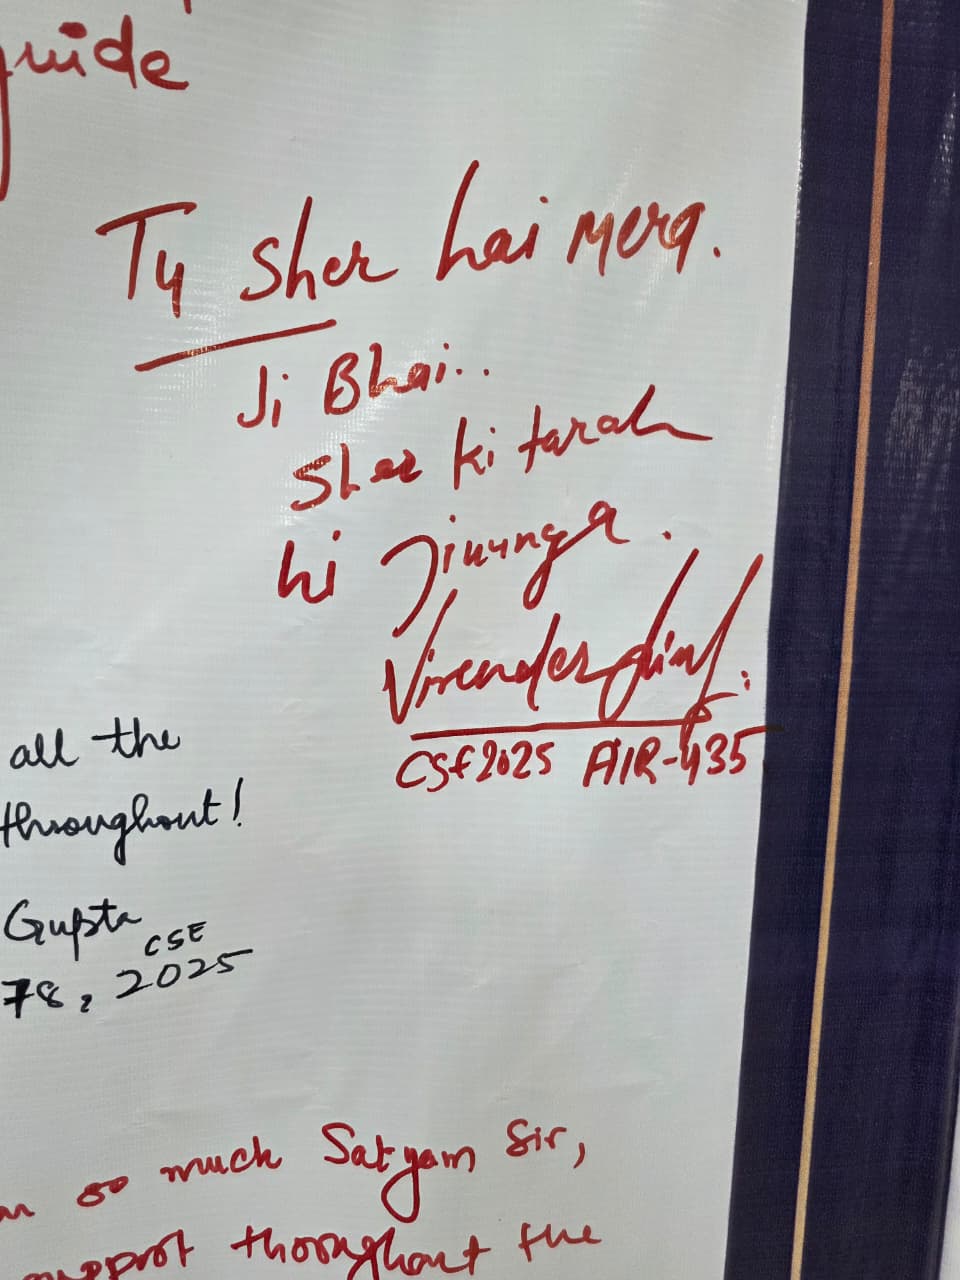 guide
Ty Sher hai merq.
Ji Bhai..
Sher ki tarah
hi Jiunga.
Virender Singh.
CSE 2025 AIR-435
all the
throughout!
Gupta
CSE
78, 2025
so much Satyam Sir,
support thoroughout the